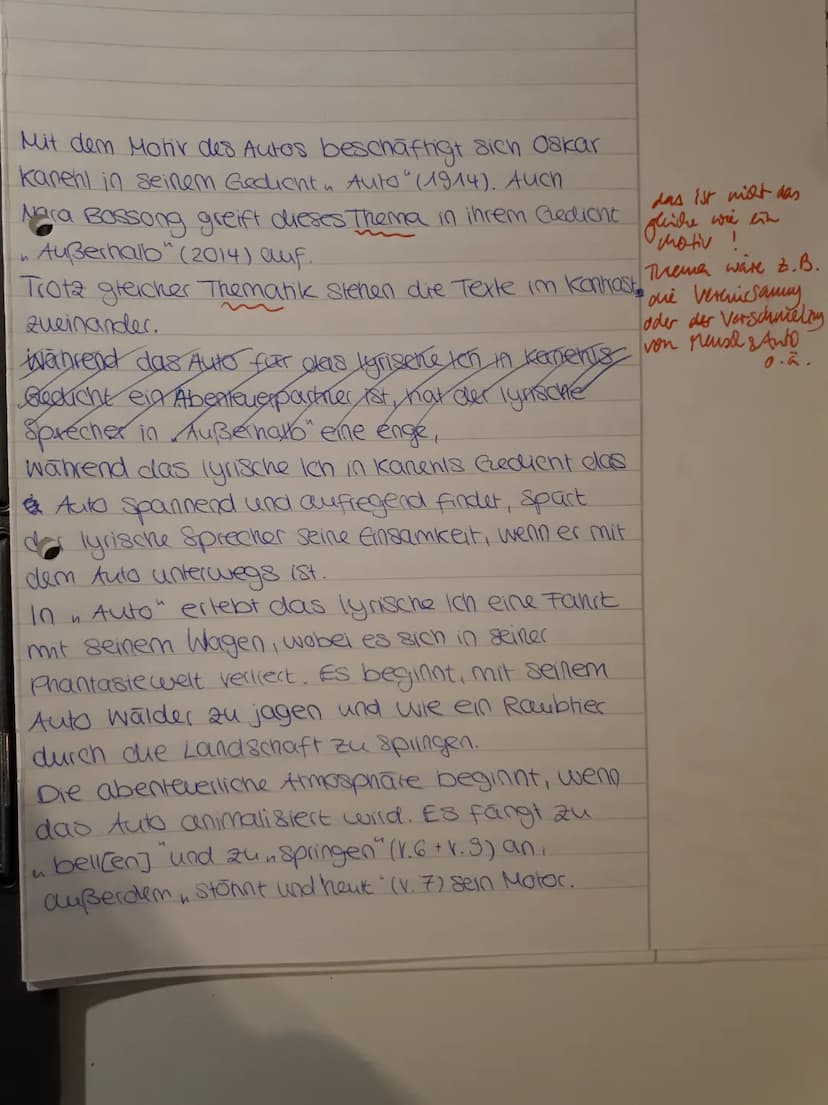 Mit dem Motiv des Autos beschäftigt sich Oskar
Kanehl in seinem Gedicht „Auto“ (1914). Auch
Nora Bossong greift dieses Thema in ihrem Gedicht
„Außerhalb“ (2014) auf.
Trotz gleicher Thematik stehen die Texte im Kontrast
zueinander.
Während das Auto für das lyrische Ich in Kanehls
Gedicht ein Abenteuerpartner ist, hat der lyrische
Sprecher in „Außerhalb“ eine enge,
Während das lyrische Ich in Kanehls Gedicht das
Auto spannend und aufregend findet, spürt
der lyrische Sprecher seine Einsamkeit, wenn er mit
dem Auto unterwegs ist.
In „Auto“ erlebt das lyrische Ich eine Fahrt
mit seinem Wagen, wobei es sich in seiner
Phantasiewelt verliert. Es beginnt, mit seinem
Auto Wälder zu jagen und wie ein Raubtier
durch die Landschaft zu springen.
Die abenteuerliche Atmosphäre beginnt, wenn
das Auto animalisiert wird. Es fängt zu
„bell[en]“ und zu „springen“ (V. 6 + V. 9) an,
außerdem „stöhnt und heult“ (V. 7) sein Motor.
das ist nicht das
gleiche wie ein
Motiv !
Thema wäre z.B.
die Vereinsamung
oder der Verschmelzung
von Mensch & Auto
o.ä.